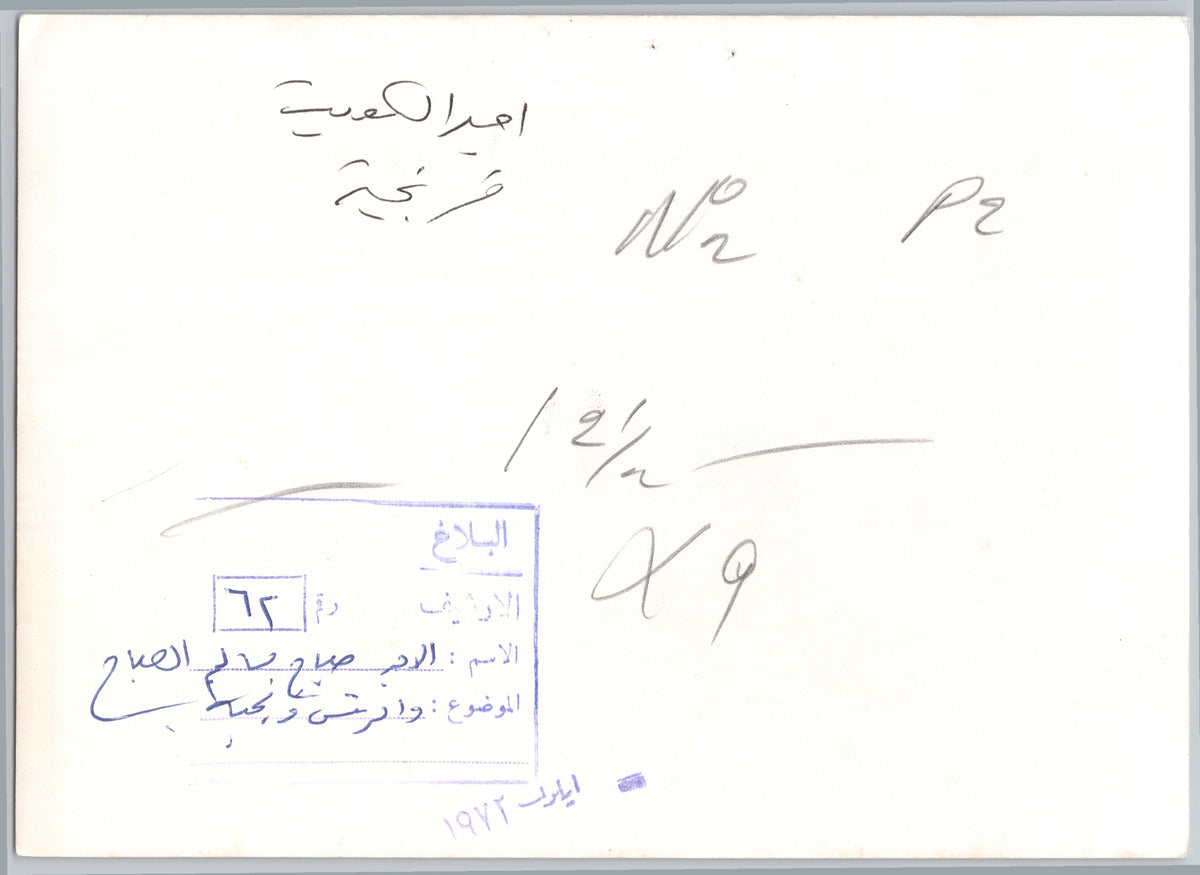 امير الكويت
فرنجية
Nº 2
P2
12 1/2
X 9
البلاغ
الارشيف رقم ٦٢
الاسم : الامير صباح سالم الصباح
الموضوع : والرئيس فرنجية
ايلول ١٩٧٢